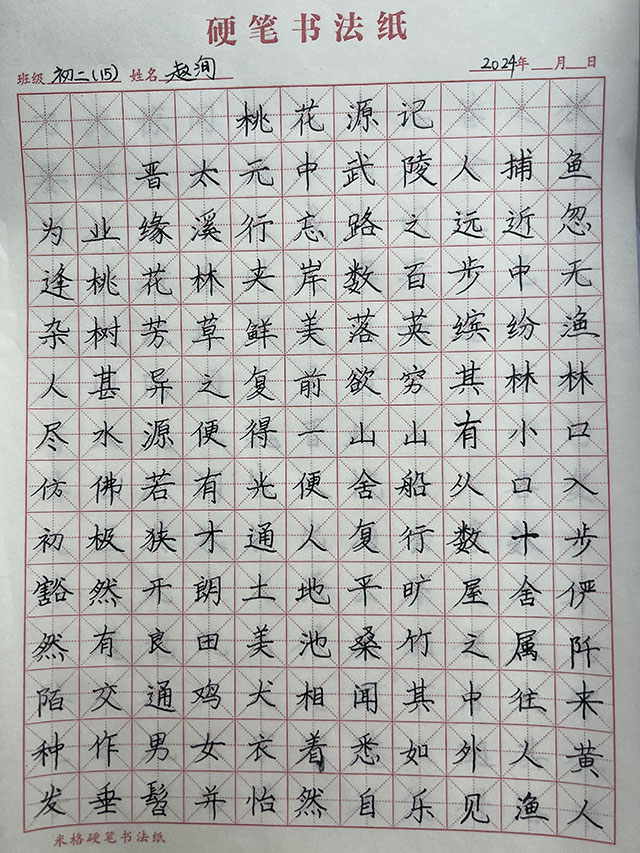 硬笔书法纸
班级 初二(15) 姓名 赵洵 2024年 月 日
桃花源记
晋太元中武陵人捕鱼
为业缘溪行忘路之远近忽
逢桃花林夹岸数百步中无
杂树芳草鲜美落英缤纷渔
人甚异之复前欲穷其林林
尽水源便得一山山有小口
仿佛若有光便舍船从口入
初极狭才通人复行数十步
豁然开朗土地平旷屋舍俨
然有良田美池桑竹之属阡
陌交通鸡犬相闻其中往来
种作男女衣着悉如外人黄
发垂髫并怡然自乐见渔人
米格硬笔书法纸